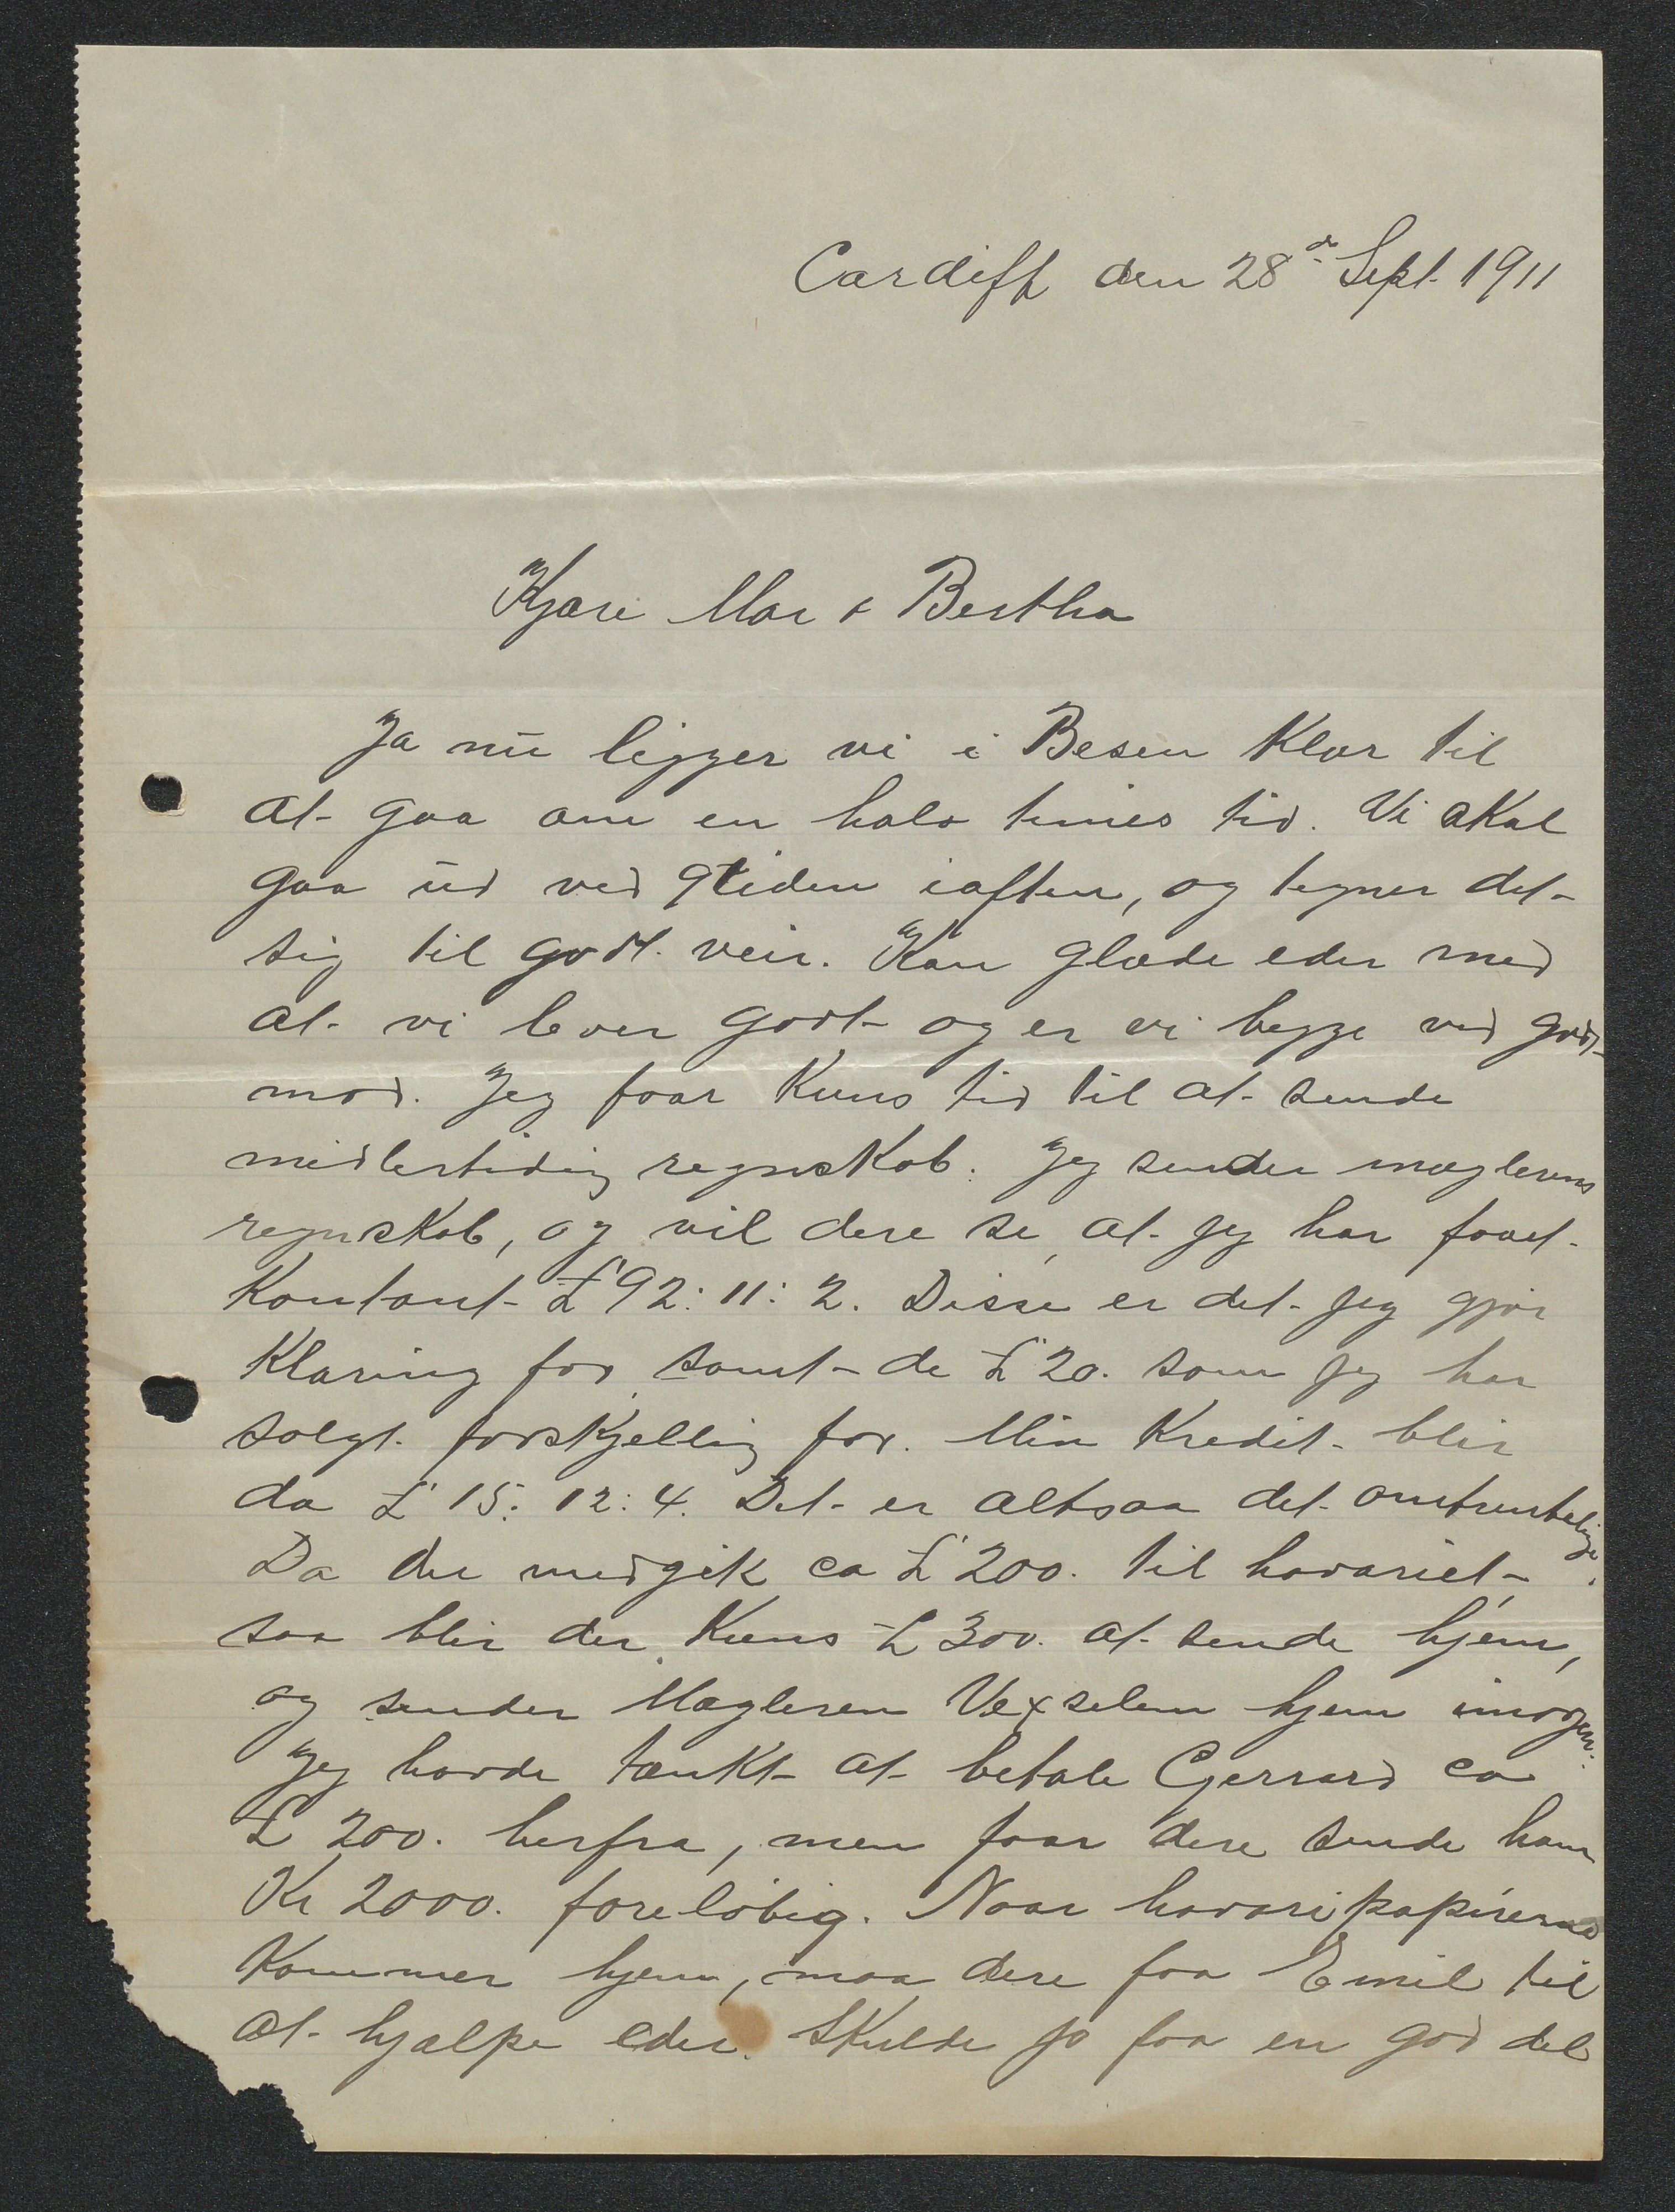 Cardiff den 28de Sept. 1911
Kjære Mor & Bertha
Ja nu ligger vi i Besen klar til
at gaa om en halv times tid. Vi skal
gaa ud ved 9tiden iaften, og tegner det
sig til godt veir. Kan glæde eder med
at vi lever godt og er vi begge ved godt
mod. Jeg faar kuns tid til at sende
midlertidig regnskab. Jeg sender mæglerens
regnskab, og vil dere se, at jeg har faaet
Kontant £ 92: 11: 2. Disse er det jeg gjør
Klaring for samt de £ 20. som jeg har
solgt forskjellig for. Min Kredit blir
da £ 15: 12: 4. Det er altsaa det omtrentelige.
Da der medgik ca £ 200. til havariet,
saa blir der kuns £ 300. at sende hjem,
og sender Mægleren Vexselen hjem imorgen.
Jeg havde tænkt at betale Gerrard ca
£ 200. herfra, men faar dere sende ham
Kr 2000. foreløbig. Naar havaripapirerne
Kommer hjem, maa dere faa Emil til
at hjælpe eder. Skulde jo faa en god del